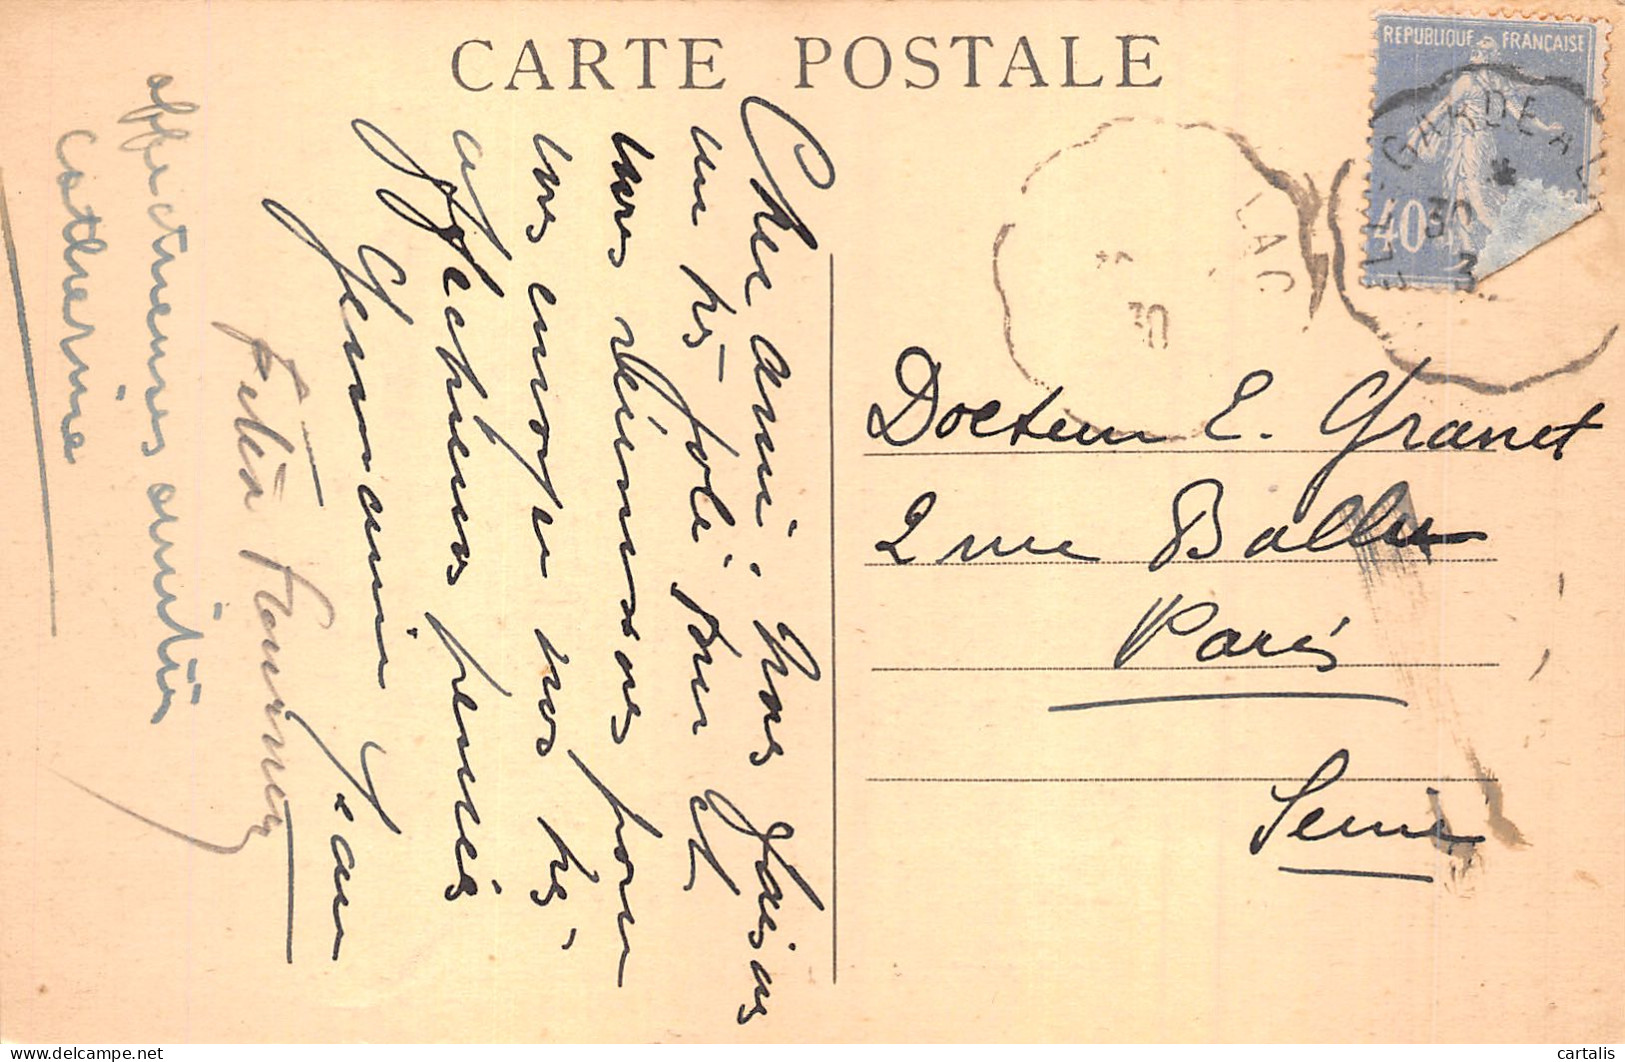 CARTE POSTALE
REPUBLIQUE FRANÇAISE
40
GARDEAU
30
3
LAC
30
Cher ami, Nous faisons
un très joli tour et
nous réunissons pour
vous envoyer nos très
affectueuses pensées
Germaine Jean
affectueuses amitiés
Catherine
Docteur E. Granet
2 rue Ballu
Paris
Seine
delcampe.net
cartalis